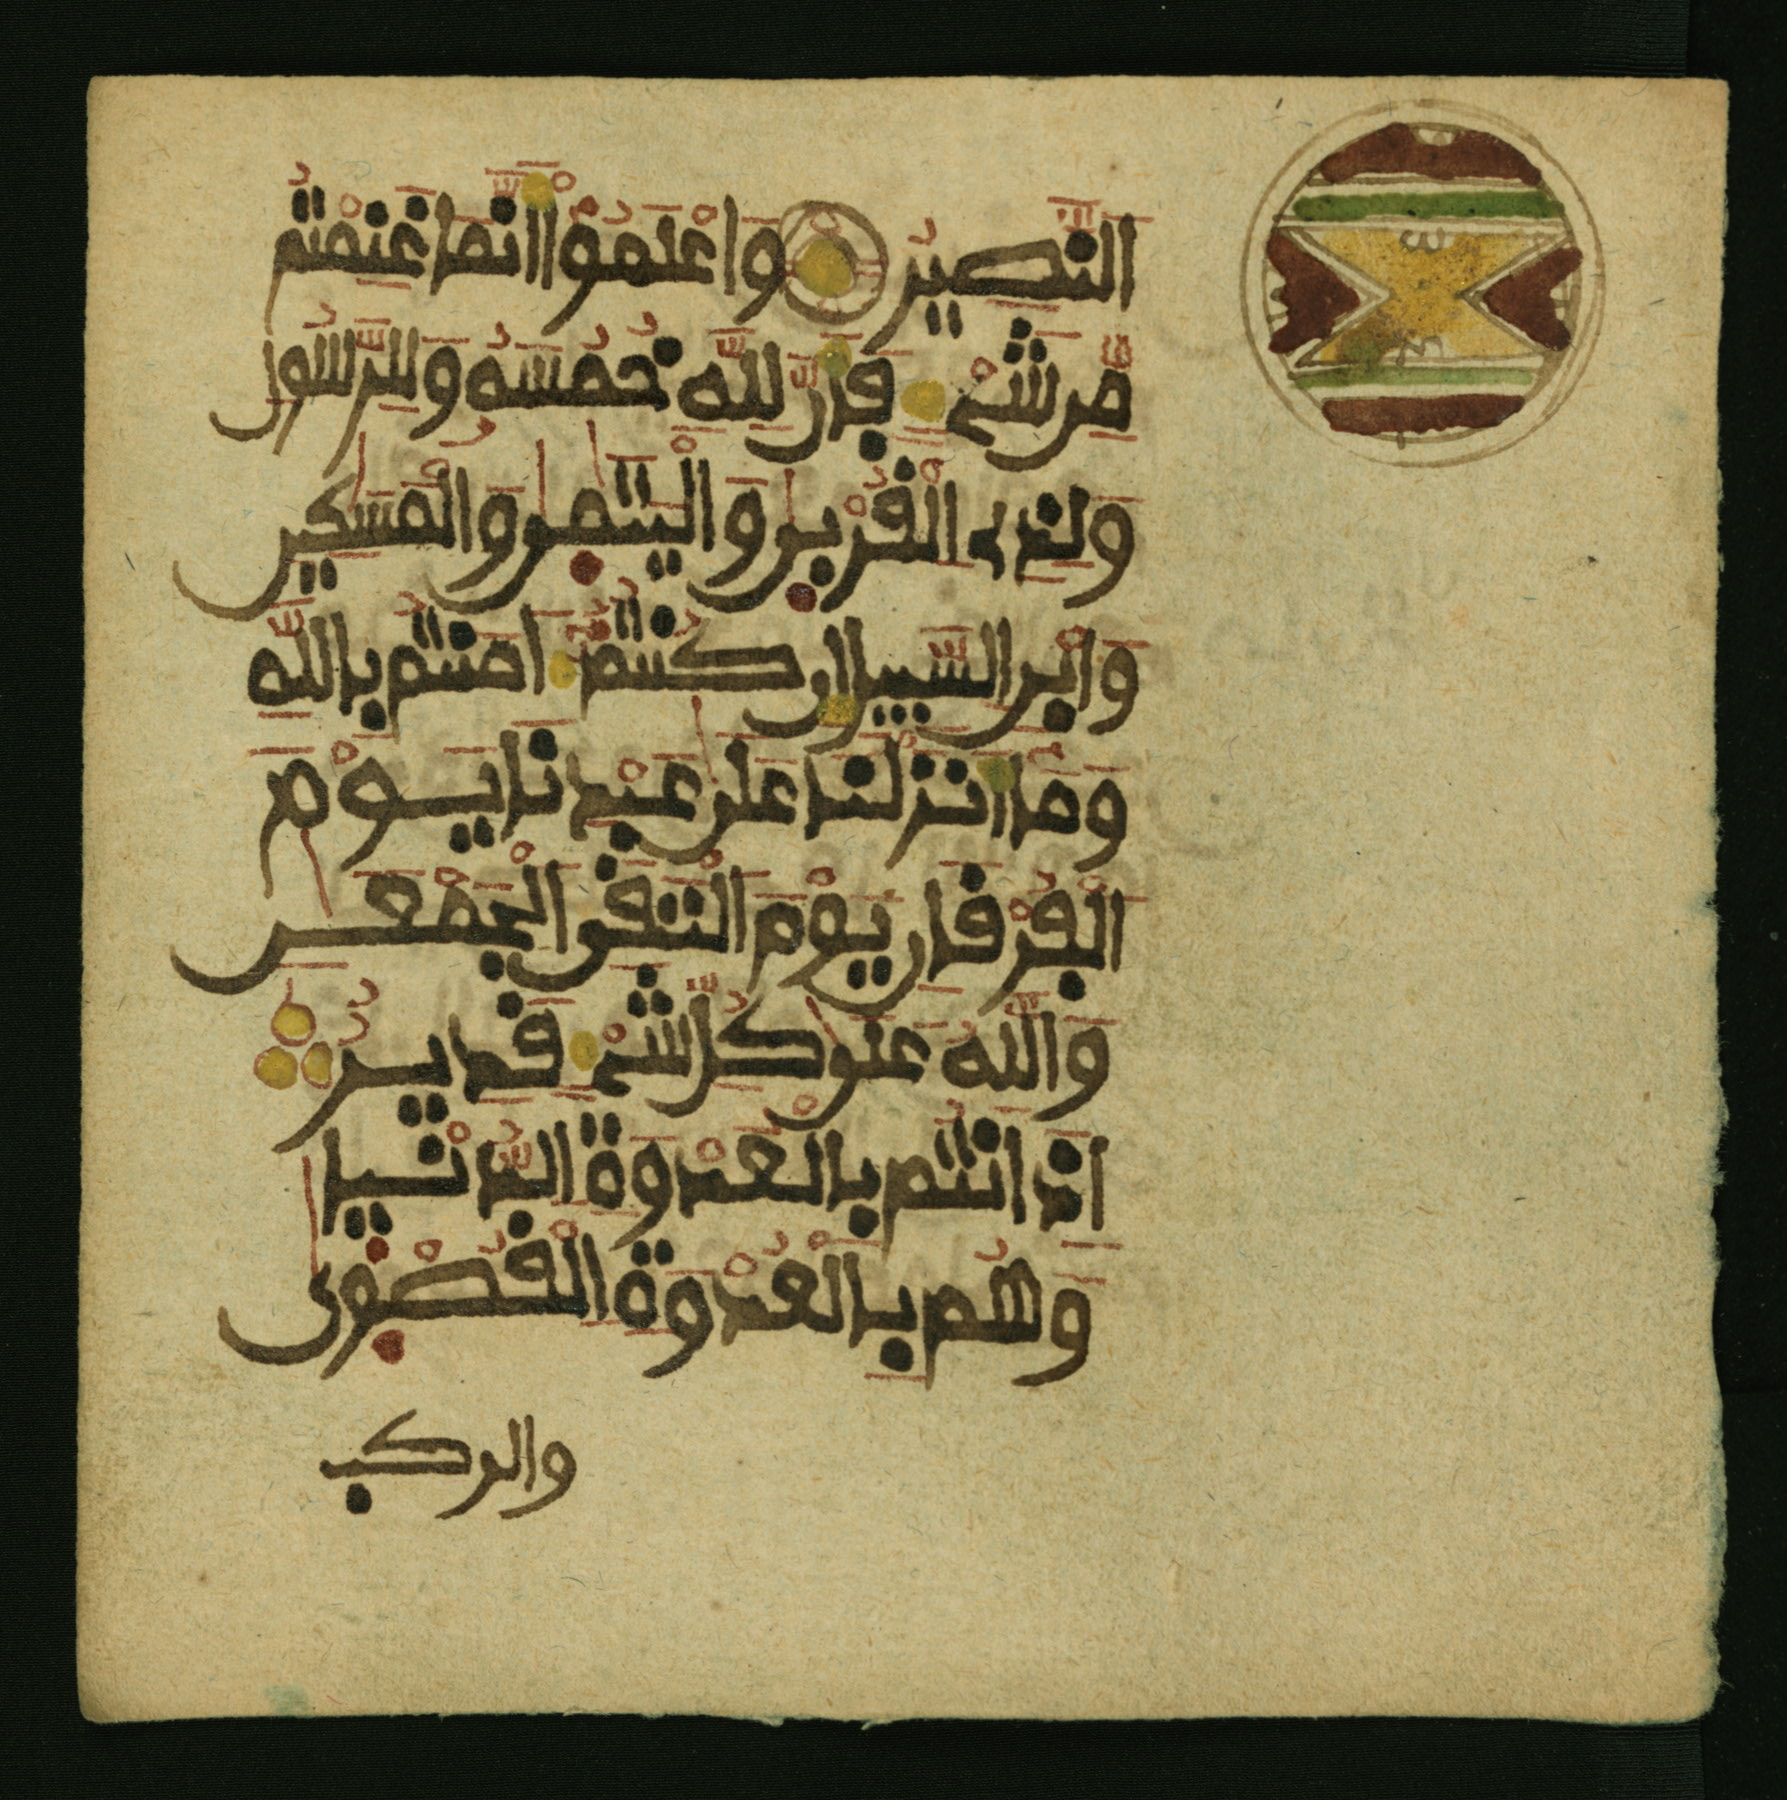 النَّصِيرُ وَاعْلَمُوا أَنَّمَا غَنِمْتُمْ
مِّن شَيْءٍ فَأَنَّ لِلَّهِ خُمُسَهُ وَلِلرَّسُولِ
وَلِذِي الْقُرْبَىٰ وَالْيَتَٰمَىٰ وَالْمَسَٰكِينِ
وَابْنِ السَّبِيلِ إِن كُنتُمْ ءَامَنتُم بِاللَّهِ
وَمَا أَنزَلْنَا عَلَىٰ عَبْدِنَا يَوْمَ
الْفُرْقَانِ يَوْمَ الْتَقَى الْجَمْعَٰنِ
وَاللَّهُ عَلَىٰ كُلِّ شَيْءٍ قَدِيرٌ
إِذْ أَنتُم بِالْعُدْوَةِ الدُّنْيَا
وَهُم بِالْعُدْوَةِ الْقُصْوَىٰ
والركب